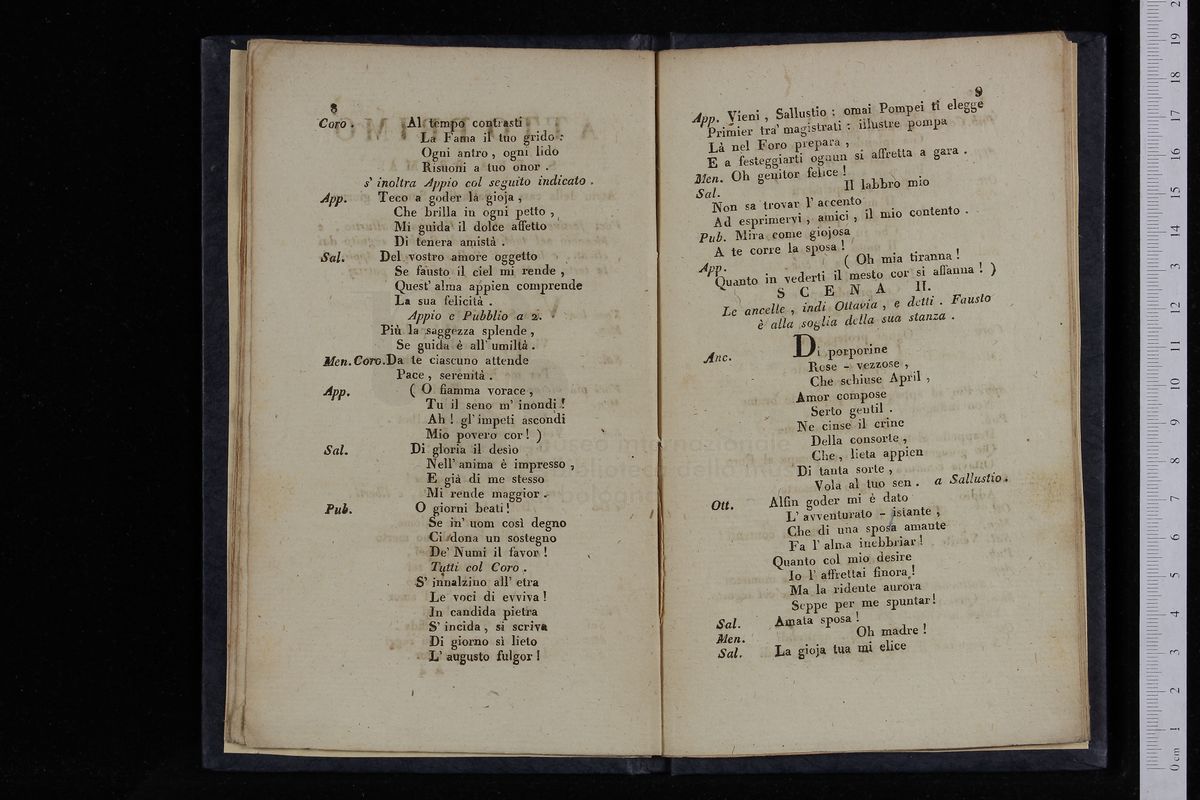 8
Coro. Al tempo contrasti
La Fama il tuo grido:
Ogni antro, ogni lido
Risuoni a tuo onor.
s' inoltra Appio col seguito indicato.
App. Teco a goder la gioja,
Che brilla in ogni petto,
Mi guida il dolce affetto
Di tenera amistà.
Sal. Del vostro amore oggetto
Se fausto il ciel mi rende,
Quest' alma appien comprende
La sua felicità.
Appio e Pubblio a 2.
Più la saggezza splende,
Se guida è all' umiltà.
Men. Coro. Da te ciascuno attende
Pace, serenità.
App. ( O fiamma vorace,
Tu il seno m' inondi!
Ah! gl' impeti ascondi
Mio povero cor! )
Sal. Di gloria il desìo
Nell' anima è impresso,
E già di me stesso
Mi rende maggior.
Pub. O giorni beati!
Se in' uom così degno
Ci dona un sostegno
De' Numi il favor!
Tutti col Coro.
S' innalzino all' etra
Le voci di evviva!
In candida pietra
S' incida, si scriva
Di giorno sì lieto
L' augusto fulgor!
9
App. Vieni, Sallustio: omai Pompei ti elegge
Primier tra' magistrati: illustre pompa
Là nel Foro prepara,
E a festeggiarti ognun si affretta a gara.
Men. Oh genitor felice!
Sal. Il labbro mio
Non sa trovar l' accento
Ad esprimervi, amici, il mio contento.
Pub. Mira come giojosa
A te corre la sposa!
App. ( Oh mia tiranna!
Quanto in vederti il mesto cor si affanna! )
SCENA II.
Le ancelle, indi Ottavia, e detti. Fausto
è alla soglia della sua stanza.
Anc. Di porporine
Rose - vezzose,
Che schiuse April,
Amor compose
Serto gentil.
Ne cinse il crine
Della consorte,
Che, lieta appien
Di tanta sorte,
Vola al tuo sen. a Sallustio.
Ott. Alfin goder mi è dato
L' avventurato - istante,
Che di una sposa amante
Fa l' alma inebbriar!
Quanto col mio desire
Io l' affrettai finora!
Ma la ridente aurora
Seppe per me spuntar!
Sal. Amata sposa!
Men. Oh madre!
Sal. La gioja tua mi elice